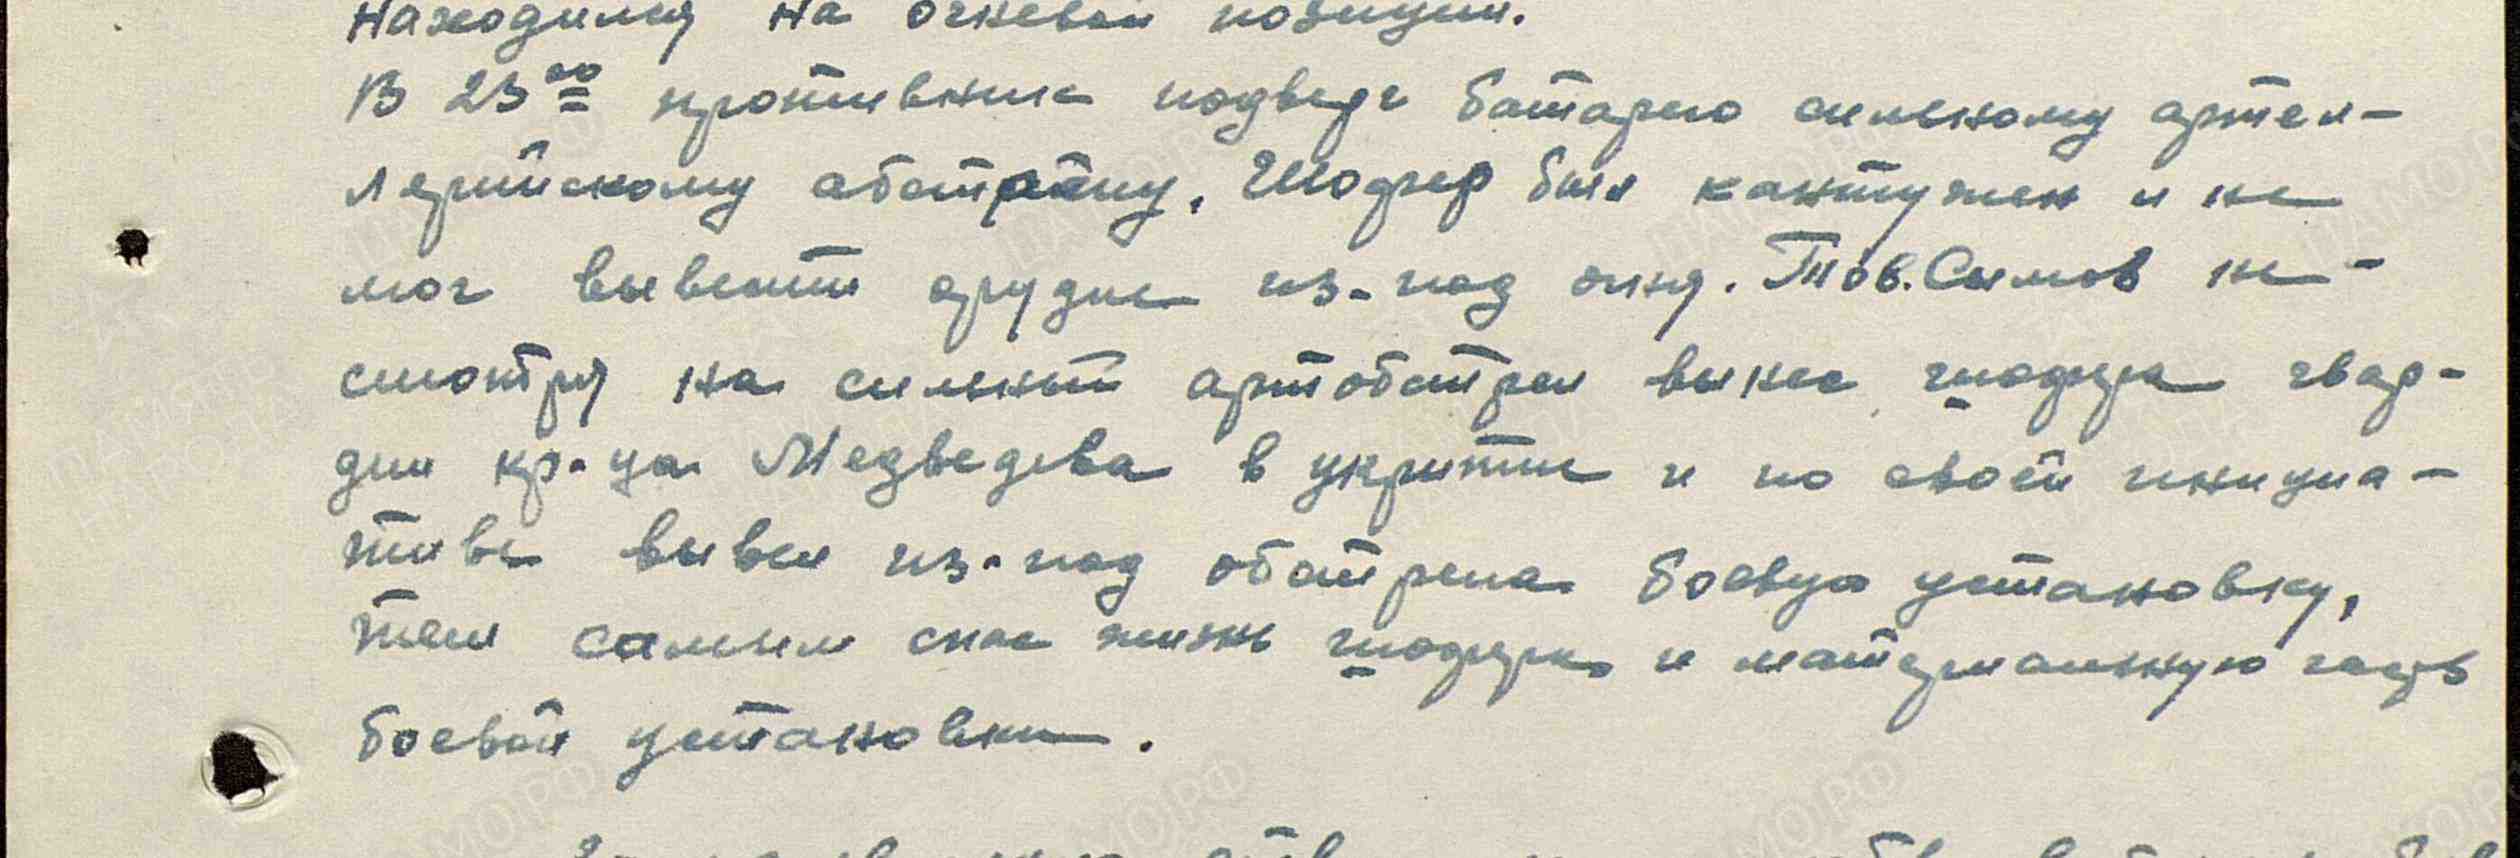 находился на огневой позиции.
В 23 00 противник подверг батарею сильному артел-
лерийскому абстрелу. Шофер был кантужен и не
мог вывести орудие из-под огня. Тов. Сымов не-
смотря на сильный артобстрел вынес шофера гвар-
дии кр-ца Медведева в укрытие и по своей инициа-
тиве вывел из-под обстрела боевую установку,
тем самым спас жизнь шофера и материальную часть
боевой установки.